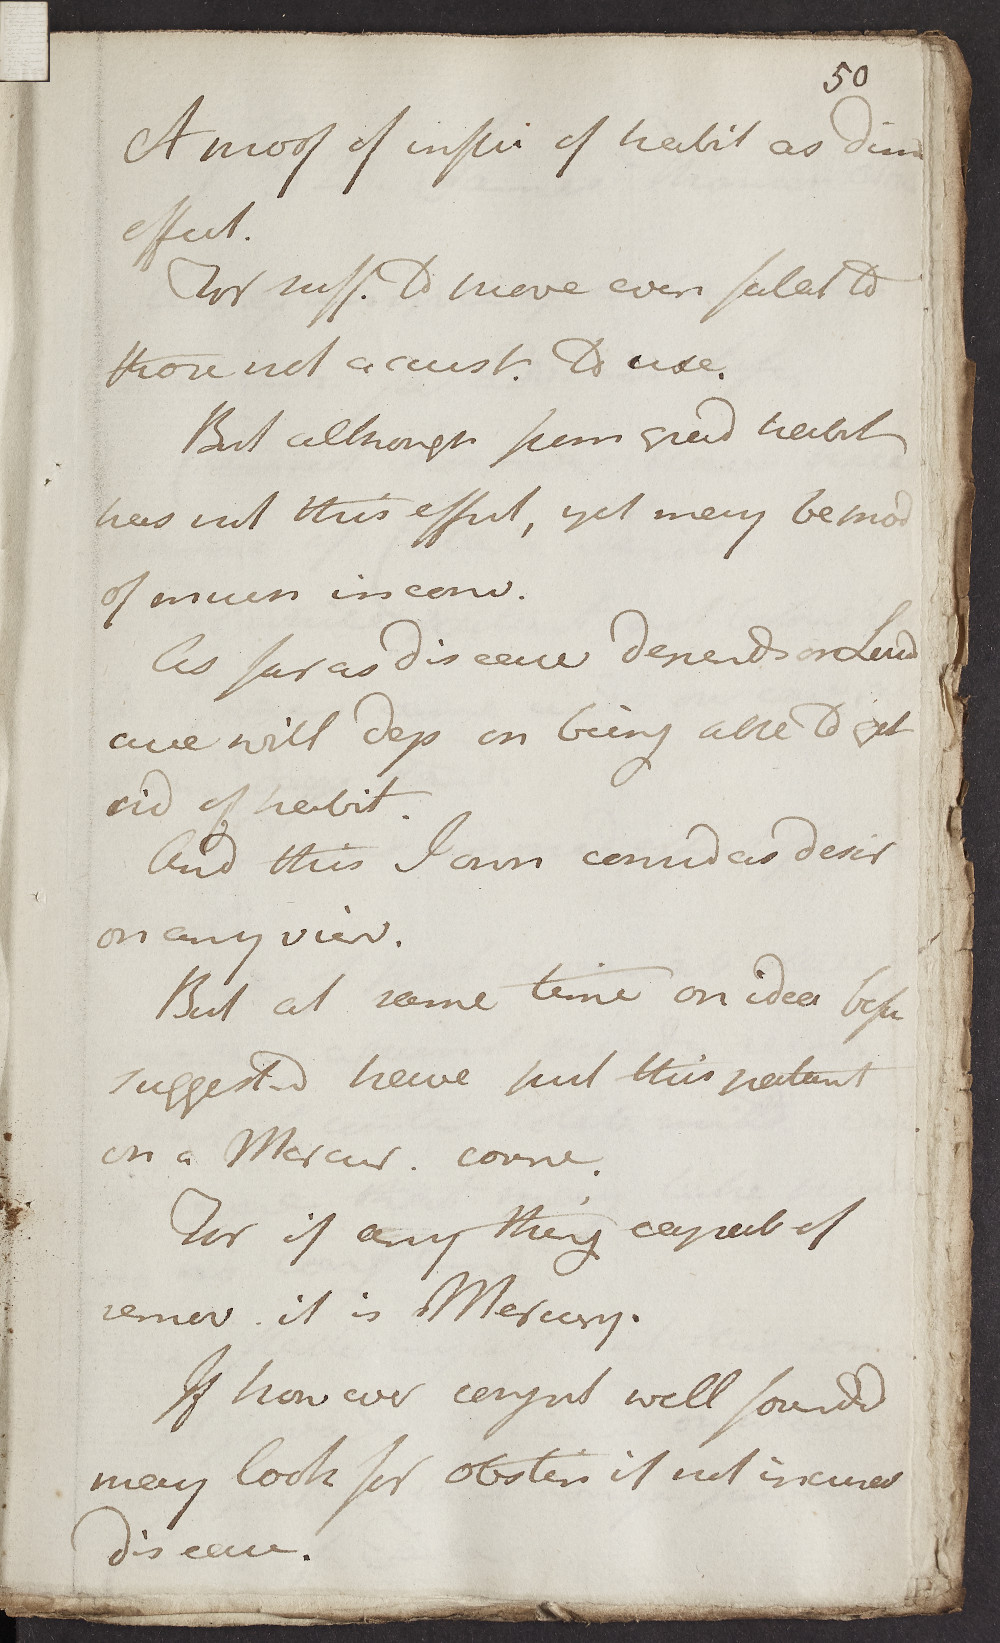 50
A proof of influ of habit as dim
effect.
For suff. to prove even fatal to
those not accust. to use.
But although from grad habit
has not this effect, yet may be prod
of much inconv.
As far as disease depends on Laud
cure will dep on being able to get
rid of habit.
And this I own consid as desir
on any view.
But at same time on idea befor
suggested have put this patient
on a Mercur. course.
For if any thing capab of
remov. it is Mercury.
If however conject well founded
may look for obstin if not incurab
disease.